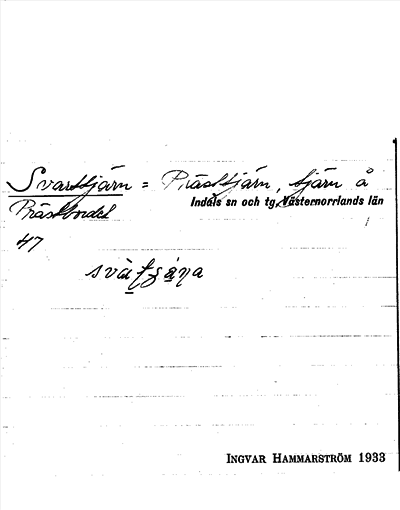 Svarttjärn = Prästtjärn, tjärn å
Prästbordet
Indals sn och tg, Västernorrlands län
47
INGVAR HAMMARSTRÖM 1933